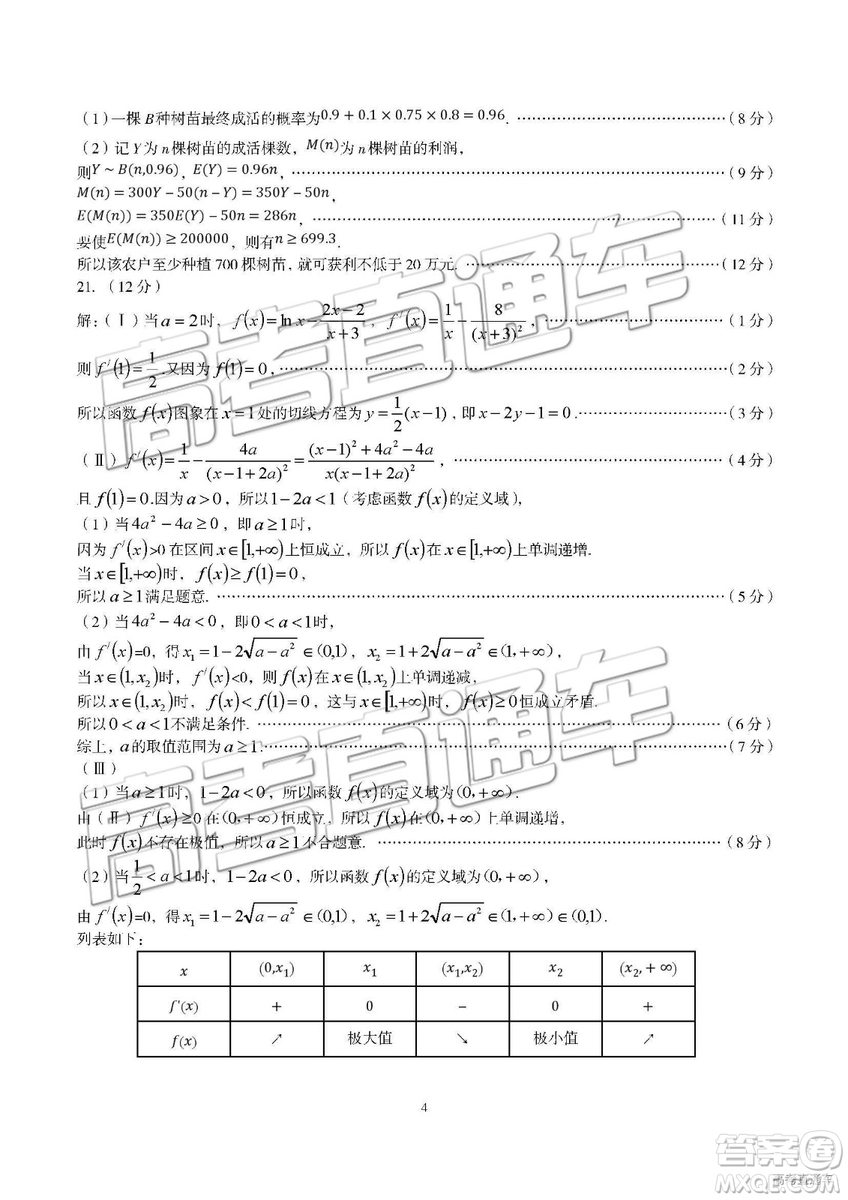 （1）一棵B种树苗最终成活的概率为0.9+0.1×0.75×0.8=0.96. ……………………………………（8分）
（2）记Y为n棵树苗的成活棵数，M(n)为n棵树苗的利润，
则Y~B(n,0.96)，E(Y)=0.96n，……………………………………（9分）
M(n)=300Y−50(n−Y)=350Y−50n，
E(M(n))=350E(Y)−50n=286n，……………………………………（11分）
要使E(M(n))≥200000，则有n≥699.3.
所以该农户至少种植700棵树苗，就可获利不低于20万元. ……………………………………（12分）
21.（12分）
解：（Ⅰ）当a=2时，f(x)=ln x−(2x−2)/(x+3)，f′(x)=1/x−8/(x+3)²，……………………………………（1分）
则f′(1)=1/2.又因为f(1)=0，……………………………………（2分）
所以函数f(x)图象在x=1处的切线方程为y=1/2(x−1)，即x−2y−1=0. ……………………………………（3分）
（Ⅱ）f′(x)=1/x−4a/(x−1+2a)²=((x−1)²+4a²−4a)/(x(x−1+2a)²)，……………………………………（4分）
且f(1)=0.因为a>0，所以1−2a<1（考虑函数f(x)的定义域），
（1）当4a²−4a≥0，即a≥1时，
因为f′(x)>0在区间x∈[1,+∞)上恒成立，所以f(x)在x∈[1,+∞)上单调递增.
当x∈[1,+∞)时，f(x)≥f(1)=0，
所以a≥1满足题意. ……………………………………（5分）
（2）当4a²−4a<0，即0<a<1时，
由f′(x)=0，得x₁=1−2√(a−a²)∈(0,1)，x₂=1+2√(a−a²)∈(1,+∞)，
当x∈(1,x₂)时，f′(x)<0，则f(x)在x∈(1,x₂)上单调递减，
所以x∈(1,x₂)时，f(x)<f(1)=0，这与x∈[1,+∞)时，f(x)≥0恒成立矛盾.
所以0<a<1不满足条件. ……………………………………（6分）
综上，a的取值范围为a≥1. ……………………………………（7分）
（Ⅲ）
（1）当a≥1时，1−2a<0，所以函数f(x)的定义域为(0,+∞).
由（Ⅱ）f′(x)≥0在(0,+∞)恒成立，所以f(x)在(0,+∞)上单调递增，
此时f(x)不存在极值，所以a≥1不合题意. ……………………………………（8分）
（2）当1/2<a<1时，1−2a<0，所以函数f(x)的定义域为(0,+∞)，
由f′(x)=0，得x₁=1−2√(a−a²)∈(0,1)，x₂=1+2√(a−a²)∈(1,+∞)∈(0,1).
列表如下：
x (0,x₁) x₁ (x₁,x₂) x₂ (x₂,+∞)
f′(x) + 0 − 0 +
f(x) ↗ 极大值 ↘ 极小值 ↗
4
高考直通车
高考直通车
答案圈
MXQE.COM